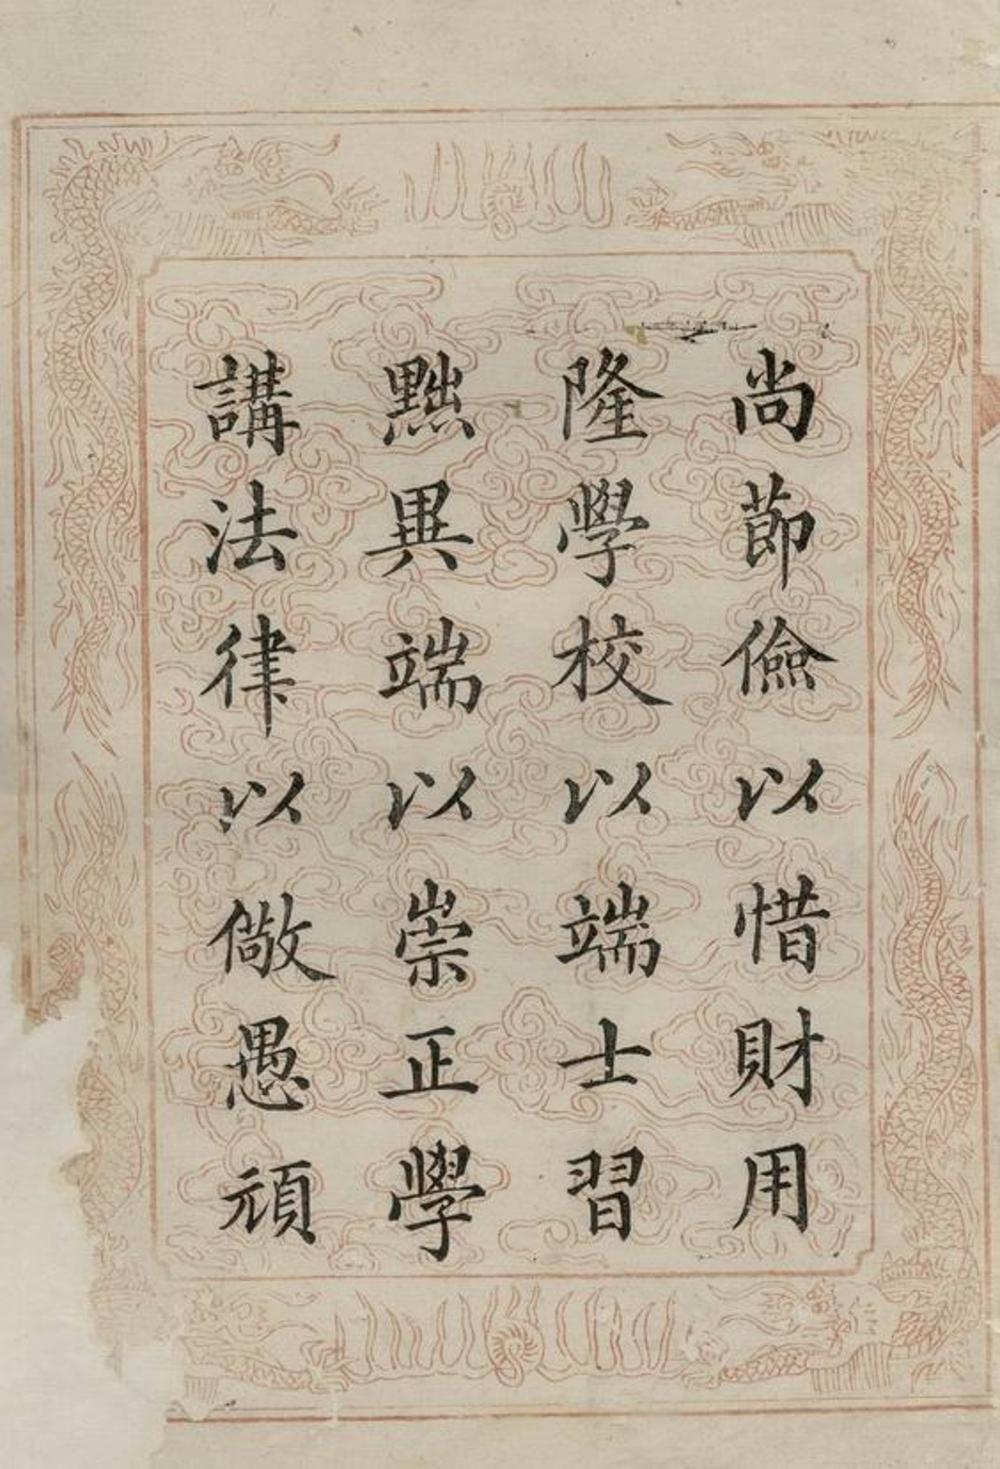 尚節儉以惜財用
隆學校以端士習
黜異端以崇正學
講法律以儆愚頑